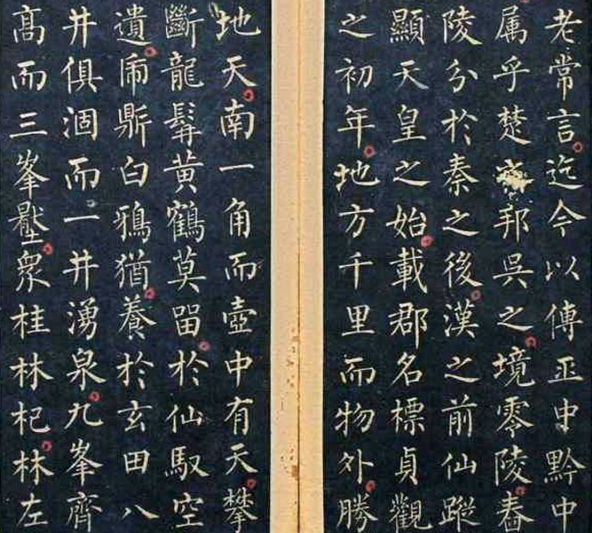 老常言迄今以傳巫中黔中
属乎楚邦吳之境零陵舂
陵分於秦之後漢之前仙蹤
顯天皇之始載郡名標貞觀
之初年地方千里而物外勝
地天南一角而壺中有天攀
斷龍髯黄鶴莫留於仙馭空
遺帝鼎白鴉猶養於玄田八
井俱涸而一井湧泉九峯齊
髙而三峯壓衆桂林杞林左